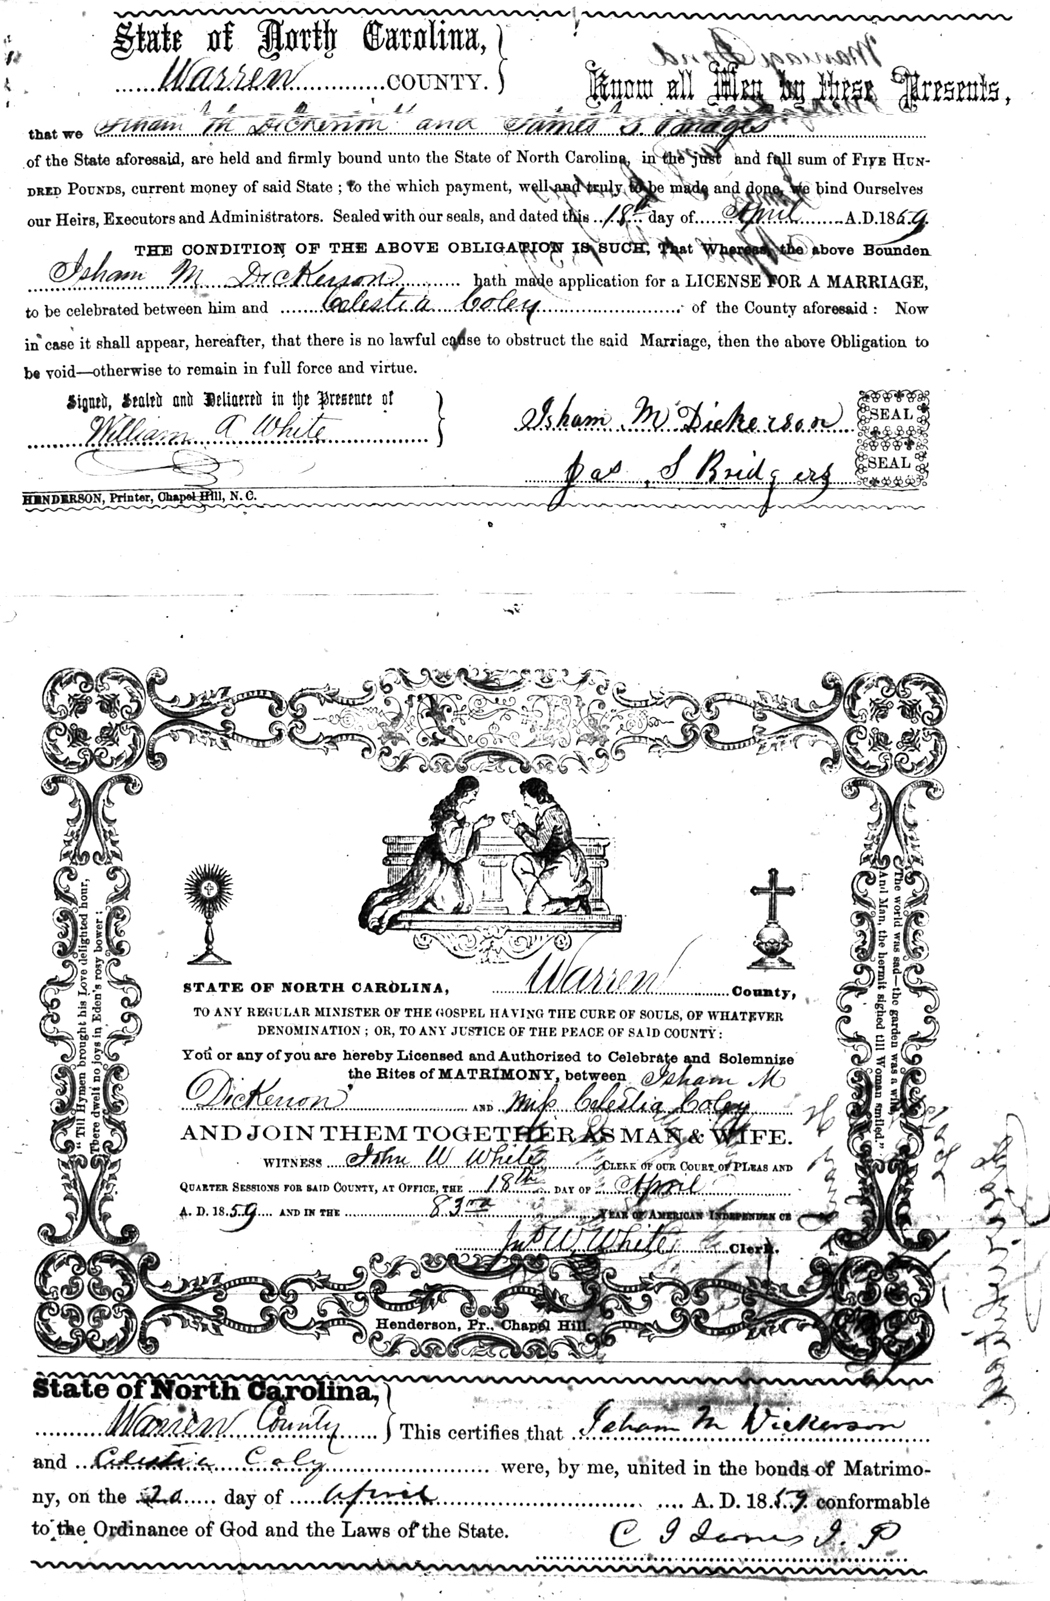 State of North Carolina,
Warren COUNTY.
Know all Men by these Presents,
that we Isham M Dickerson and James S Bridgers
of the State aforesaid, are held and firmly bound unto the State of North Carolina, in the just and full sum of FIVE HUN-
DRED POUNDS, current money of said State ; to the which payment, well and truly to be made and done, we bind Ourselves
our Heirs, Executors and Administrators. Sealed with our seals, and dated this 18th day of April A.D. 1859
THE CONDITION OF THE ABOVE OBLIGATION IS SUCH, That Whereas, the above Bounden
Isham M Dickerson hath made application for a LICENSE FOR A MARRIAGE,
to be celebrated between him and Celestia Coley of the County aforesaid : Now
in case it shall appear, hereafter, that there is no lawful cause to obstruct the said Marriage, then the above Obligation to
be void—otherwise to remain in full force and virtue.
Signed, Sealed and Delivered in the Presence of
William A White
Isham M Dickerson SEAL
Jas S Bridgers SEAL
HENDERSON, Printer, Chapel Hill, N. C.
"Till Hymen brought his Love delighted hour,
There dwelt no joys in Eden's rosy bower ;
The world was sad—the garden was a wild,
And Man, the hermit sighed till Woman smiled."
STATE OF NORTH CAROLINA, Warren County,
TO ANY REGULAR MINISTER OF THE GOSPEL HAVING THE CURE OF SOULS, OF WHATEVER
DENOMINATION ; OR, TO ANY JUSTICE OF THE PEACE OF SAID COUNTY:
You or any of you are hereby Licensed and Authorized to Celebrate and Solemnize
the Rites of MATRIMONY, between Isham M
Dickerson AND Miss Celestia Coley
AND JOIN THEM TOGETHER AS MAN & WIFE.
WITNESS John W White CLERK OF OUR COURT OF PLEAS AND
QUARTER SESSIONS FOR SAID COUNTY, AT OFFICE, THE 18th DAY OF April
A. D. 1859 AND IN THE 83rd YEAR OF AMERICAN INDEPENDENCE
Jno W White Clerk.
Henderson, Pr., Chapel Hill.
State of North Carolina,
Warren County
This certifies that Isham M Dickerson
and Celestia Coly were, by me, united in the bonds of Matrimo-
ny, on the 20 day of April A. D. 1859 conformable
to the Ordinance of God and the Laws of the State.
C J Jones J. P